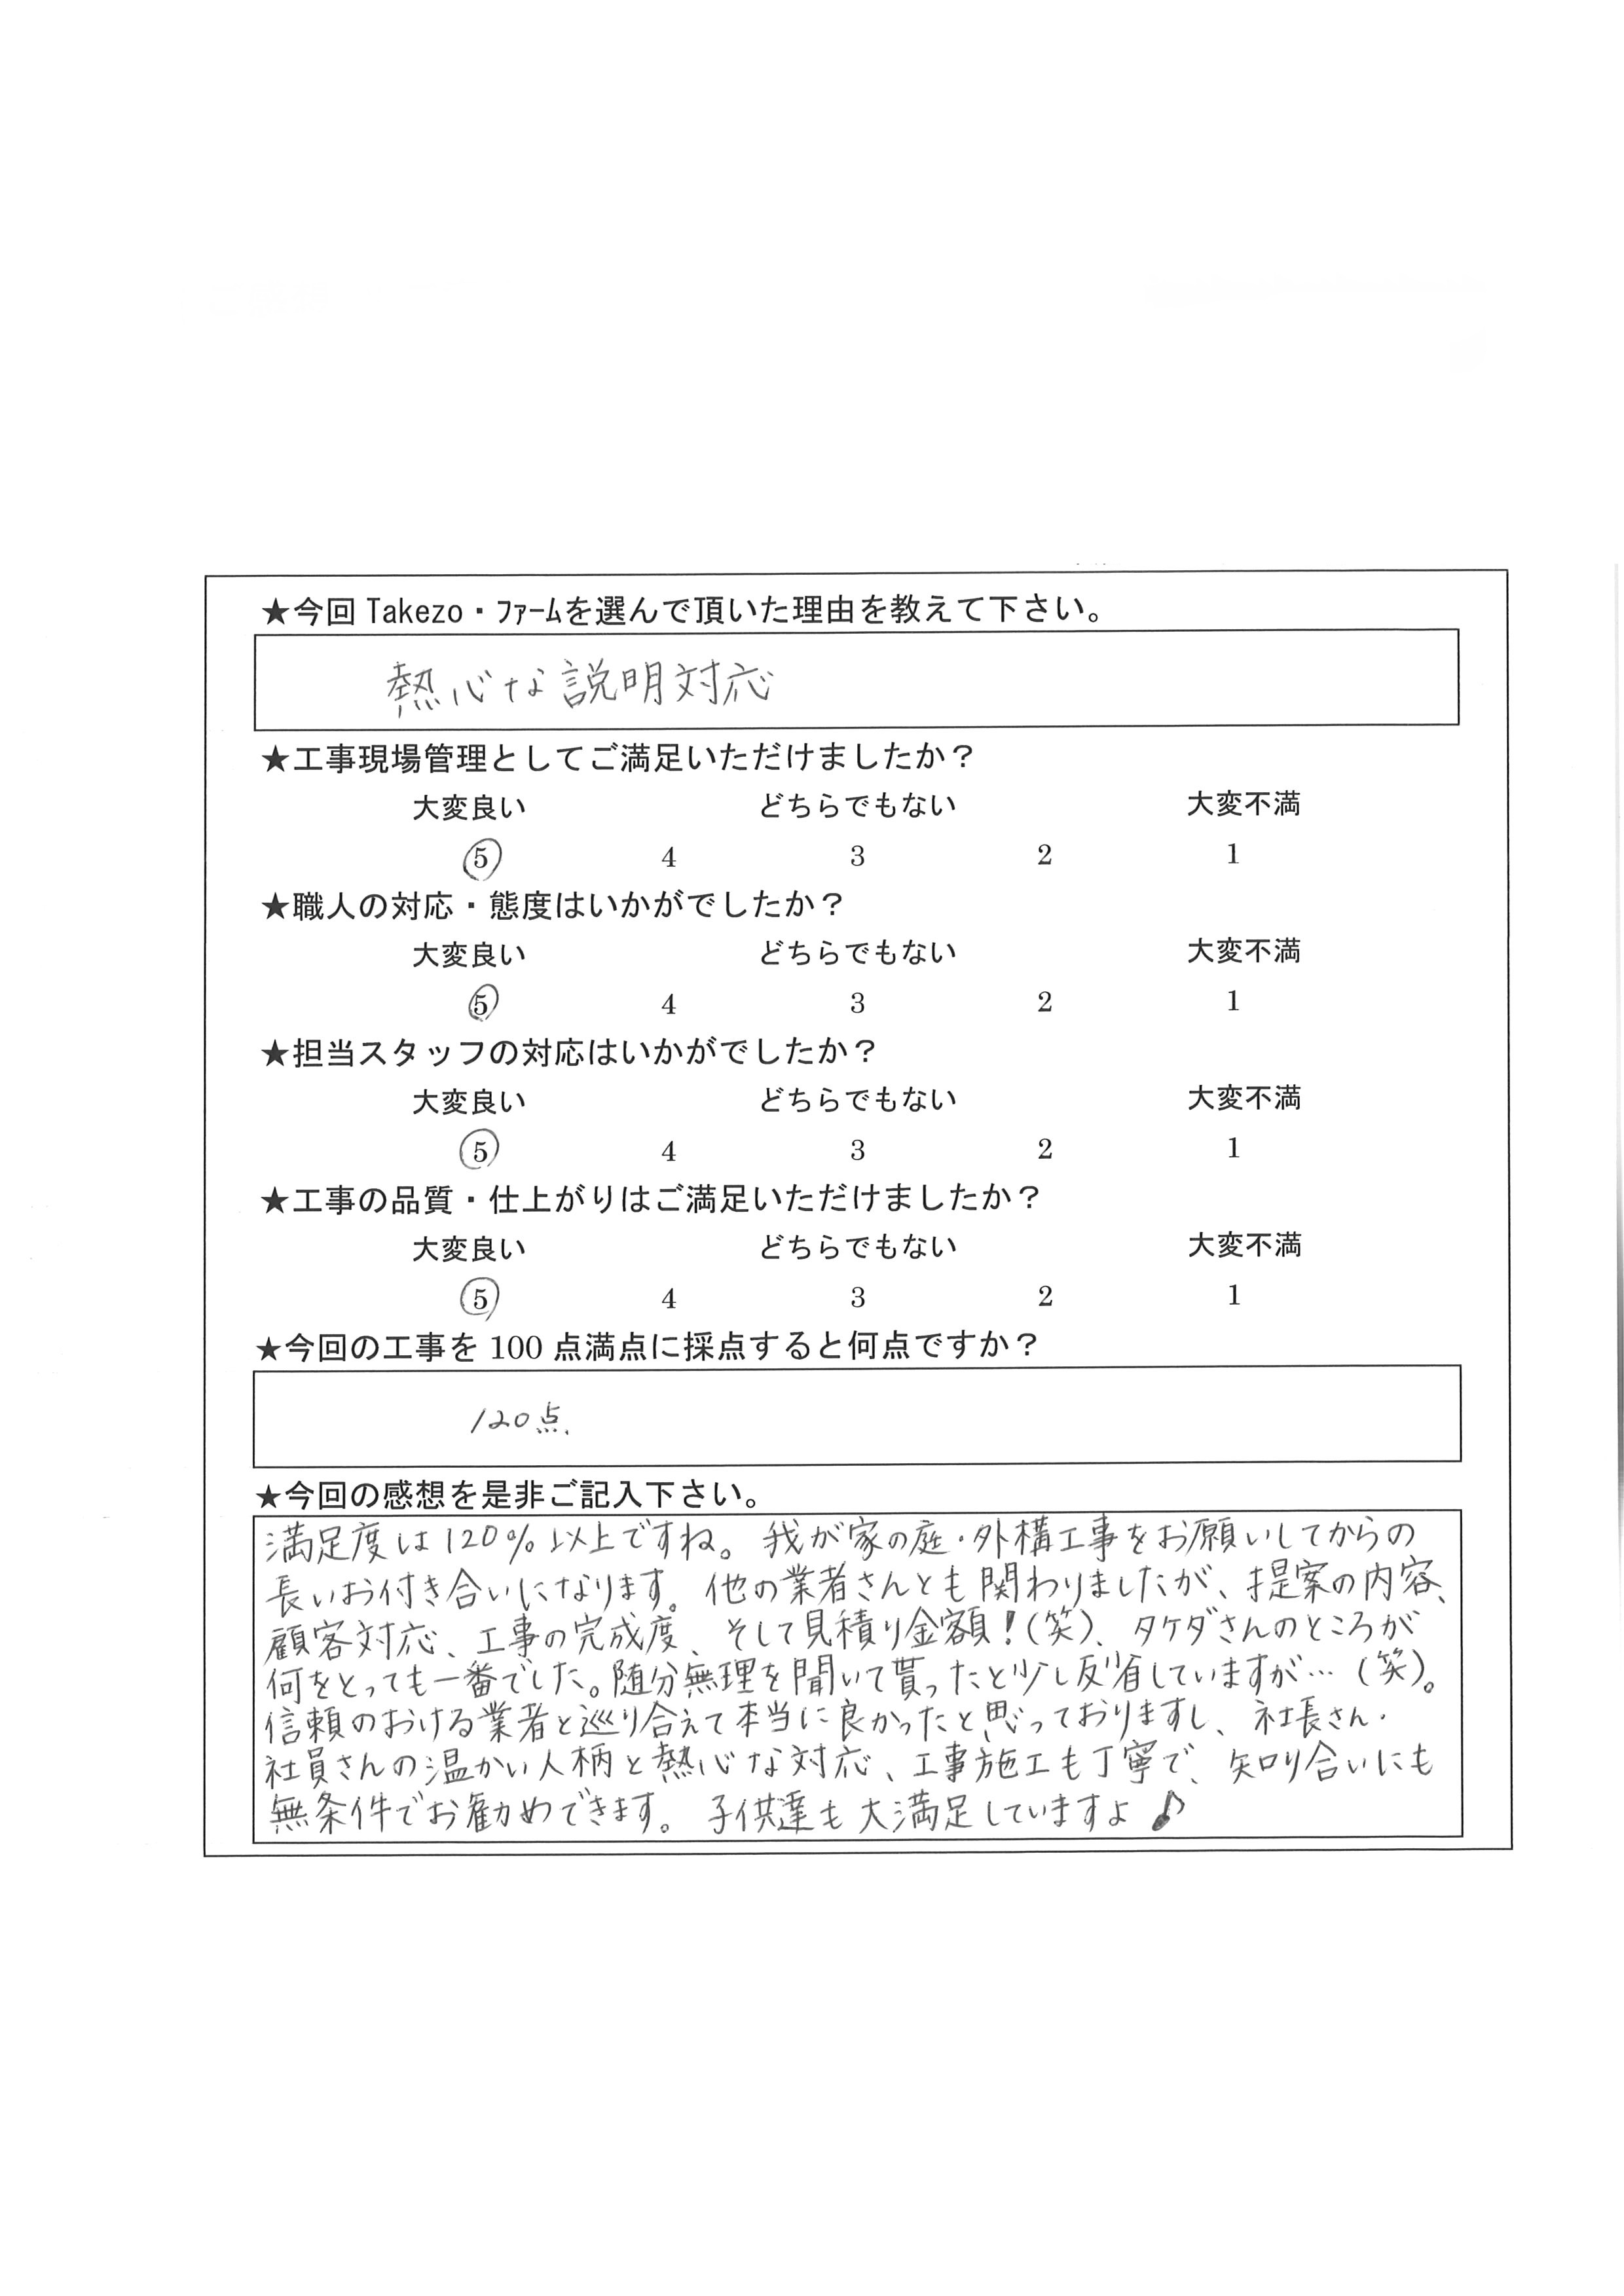 ★今回 Takezo・ﾌｧｰﾑを選んで頂いた理由を教えて下さい。
熱心な説明対応
★工事現場管理としてご満足いただけましたか？
大変良い どちらでもない 大変不満
5 4 3 2 1
★職人の対応・態度はいかがでしたか？
大変良い どちらでもない 大変不満
5 4 3 2 1
★担当スタッフの対応はいかがでしたか？
大変良い どちらでもない 大変不満
5 4 3 2 1
★工事の品質・仕上がりはご満足いただけましたか？
大変良い どちらでもない 大変不満
5 4 3 2 1
★今回の工事を 100 点満点に採点すると何点ですか？
120点.
★今回の感想を是非ご記入下さい。
満足度は120%以上ですね。我が家の庭・外構工事をお願いしてからの
長いお付き合いになります。他の業者さんとも関わりましたが、提案の内容、
顧客対応、工事の完成度、そして見積り金額！(笑)、タケダさんのところが
何をとっても一番でした。随分無理を聞いて貰ったと少し反省していますが…(笑)。
信頼のおける業者と巡り合えて本当に良かったと思っておりますし、社長さん・
社員さんの温かい人柄と熱心な対応、工事施工も丁寧で、知り合いにも
無条件でお勧めできます。子供達も大満足していますよ♪